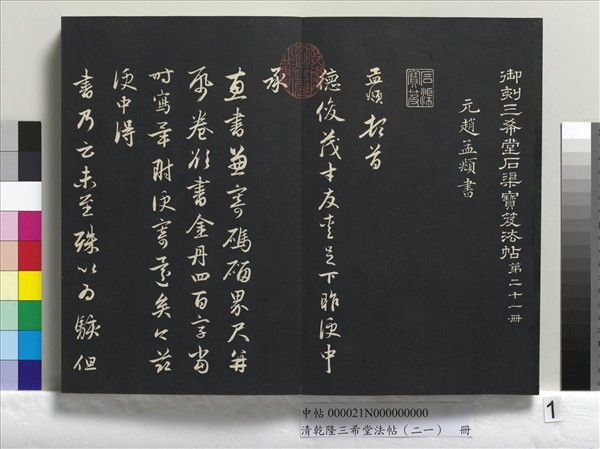 御刻三希堂石渠寶笈法帖第二十一冊
元趙孟頫書
孟頫頓首
德俊茂才友愛足下昨便中
承
惠書兼寄碼碯界尺并
冊卷欲書金丹四百字當
時寫畢附便寄還矣今茲
便中得
書乃云未至殊以為駭但
石渠寶笈
中帖 000021N000000000
清乾隆三希堂法帖（二一） 冊
1